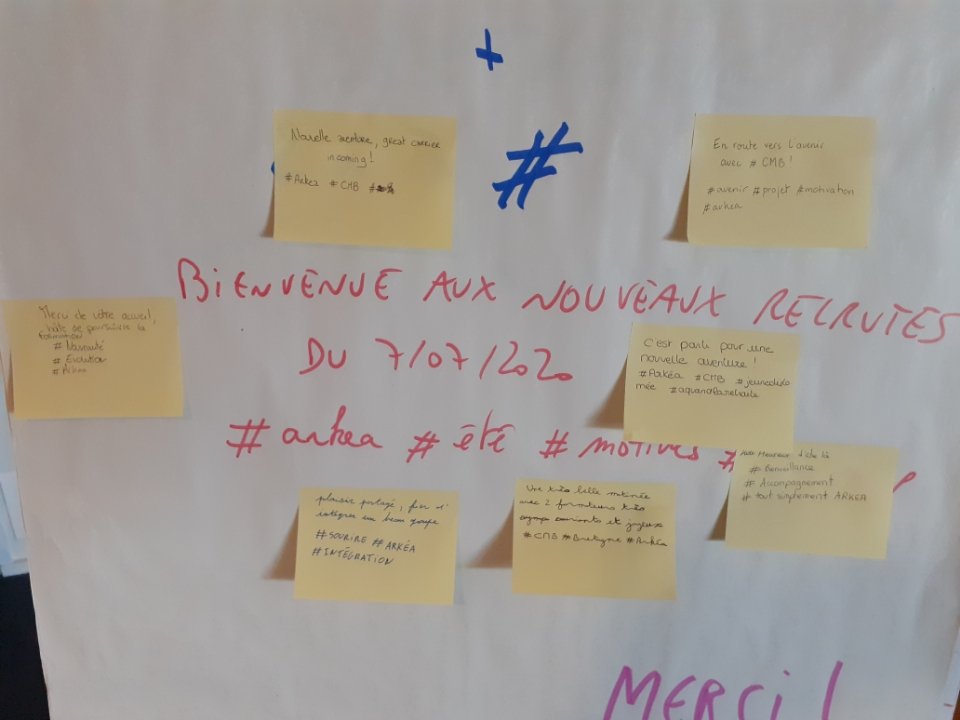 +
#
Nouvelle aventure, great carrier
incoming!
#Arkea #CMB
En route vers l'avenir
avec # CMB!
#avenir #projet #motivation
#arkea
BIENVENUE AUX NOUVEAUX RECRUTES
DU 7/07/2020
# arkea # été # motivés #
Merci de votre accueil,
hâte de poursuivre la
formation
# Nouveauté
# Evolution
# Arkea
C'est parti pour une
nouvelle aventure!
#Arkéa #CMB #jeunediplo
mée #aquandlaretraite
plaisir partagé, fier d'
intégrer un beau groupe
#SOURIRE #ARKÉA
#INTÉGRATION
Une très belle matinée
avec 2 formateurs très
sympa souriants et joyeux
#CMB #Bretagne #Arkéa
Heureux d'être là
# Bienveillance
# Accompagnement
# tout simplement ARKEA
MERCI!